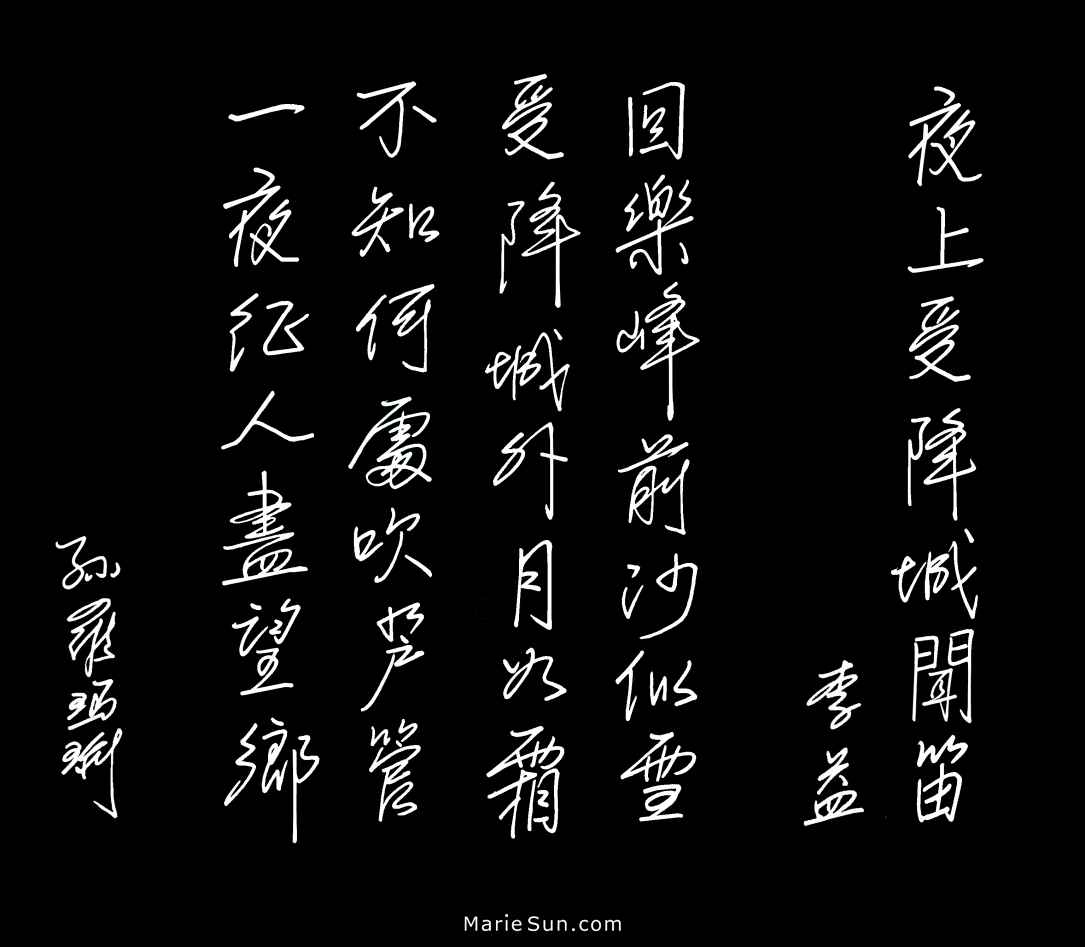 夜上受降城聞笛
李益
回樂峰前沙似雪
受降城外月如霜
不知何處吹芦管
一夜征人盡望鄉
孫羅瑪琍
MarieSun.com